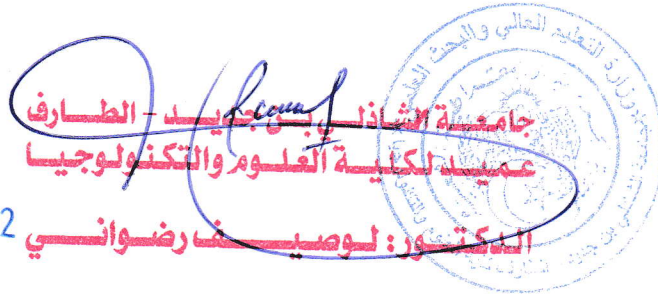 وزارة التعليم العالي والبحث العلمي
جامعة الشاذلي بن جديد - الطارف
عميد لكلية العلوم والتكنولوجيا
الدكتور: لوصيف رضواني
2